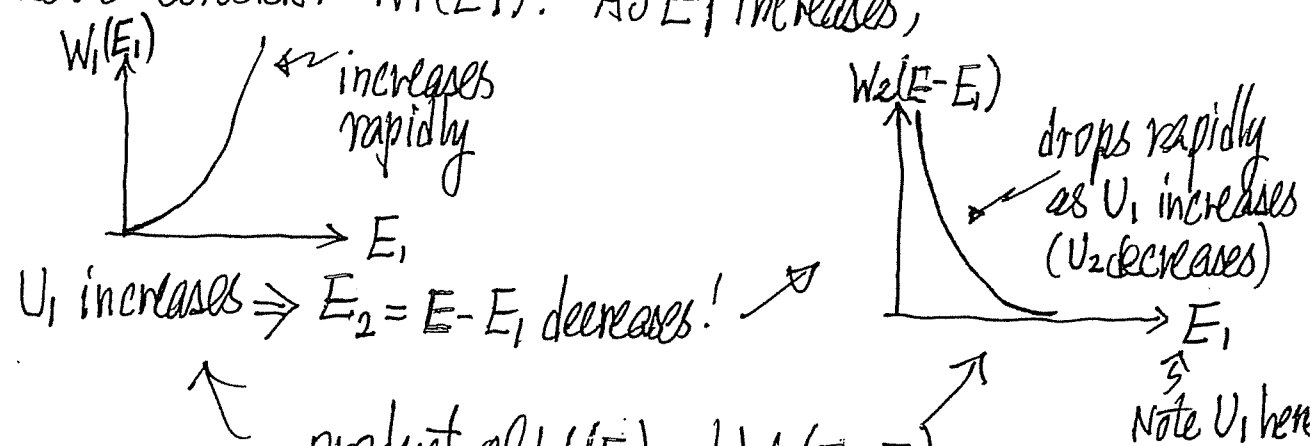 As E₁ increases,
W₁(E₁)
increases
rapidly
E₁
W₂(E-E₁)
drops rapidly
as U₁ increases
(U₂ decreases)
E₁
U₁ increases ⇒ E₂ = E - E₁ decreases!
Note U₁ here
product of